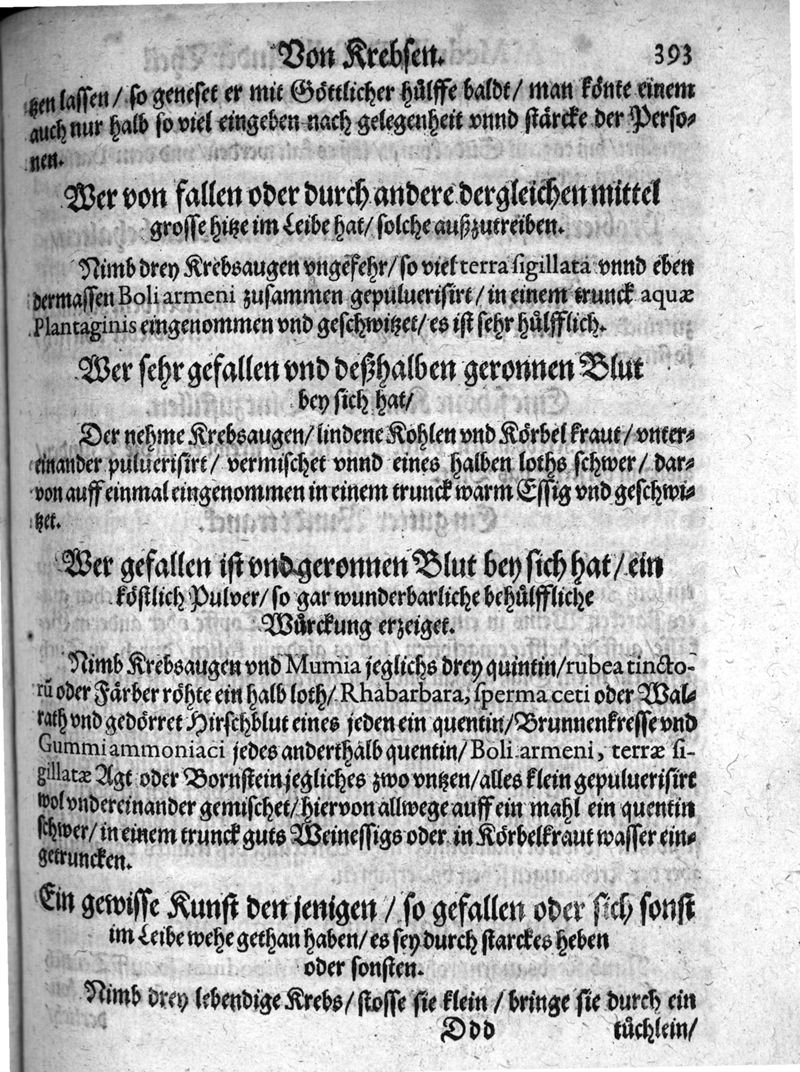 Von Krebsen. 393
tzen lassen/ so geneset er mit Göttlicher hülffe baldt/ man könte einem
auch nur halb so viel eingeben nach gelegenheit vnnd stärcke der Perso-
nen.
Wer von fallen oder durch andere dergleichen mittel
grosse hitze im Leibe hat/ solche außzutreiben.
Nimb drey Krebsaugen vngefehr/ so viel terra sigillata vnnd eben
dermassen Boli armeni zusammen gepuluerisirt/ in einem trunck aquæ
Plantaginis eingenommen vnd geschwitzet/ es ist sehr hülfflich.
Wer sehr gefallen vnd deßhalben geronnen Blut
bey sich hat/
Der nehme Krebsaugen/ lindene Kohlen vnd Körbel kraut/ vnter-
einander puluerisirt/ vermischet vnnd eines halben loths schwer/ dar-
von auff einmal eingenommen in einem trunck warm Essig vnd geschwi-
tzet.
Wer gefallen ist vnd geronnen Blut bey sich hat/ ein
köstlich Pulver/ so gar wunderbarliche behülffliche
Würckung erzeiget.
Nimb Krebsaugen vnd Mumia jeglichs drey quintin/ rubea tincto-
rũ oder Färber röhte ein halb loth/ Rhabarbara, sperma ceti oder Wal-
rath vnd gedörret Hirschblut eines jeden ein quentin/ Brunnenkresse vnd
Gummi ammoniaci jedes anderthalb quentin/ Boli armeni, terræ si-
gillatæ Agt oder Bornstein jegliches zwo vntzen/ alles klein gepuluerisirt
wol vndereinander gemischet/ hiervon allwege auff ein mahl ein quentin
schwer/ in einem trunck guts Weinessigs oder in Körbelkraut wasser ein-
getruncken.
Ein gewisse Kunst den jenigen/ so gefallen oder sich sonst
im Leibe wehe gethan haben/ es sey durch starckes heben
oder sonsten.
Nimb drey lebendige Krebs/ stosse sie klein/ bringe sie durch ein
Ddd tüchlein/